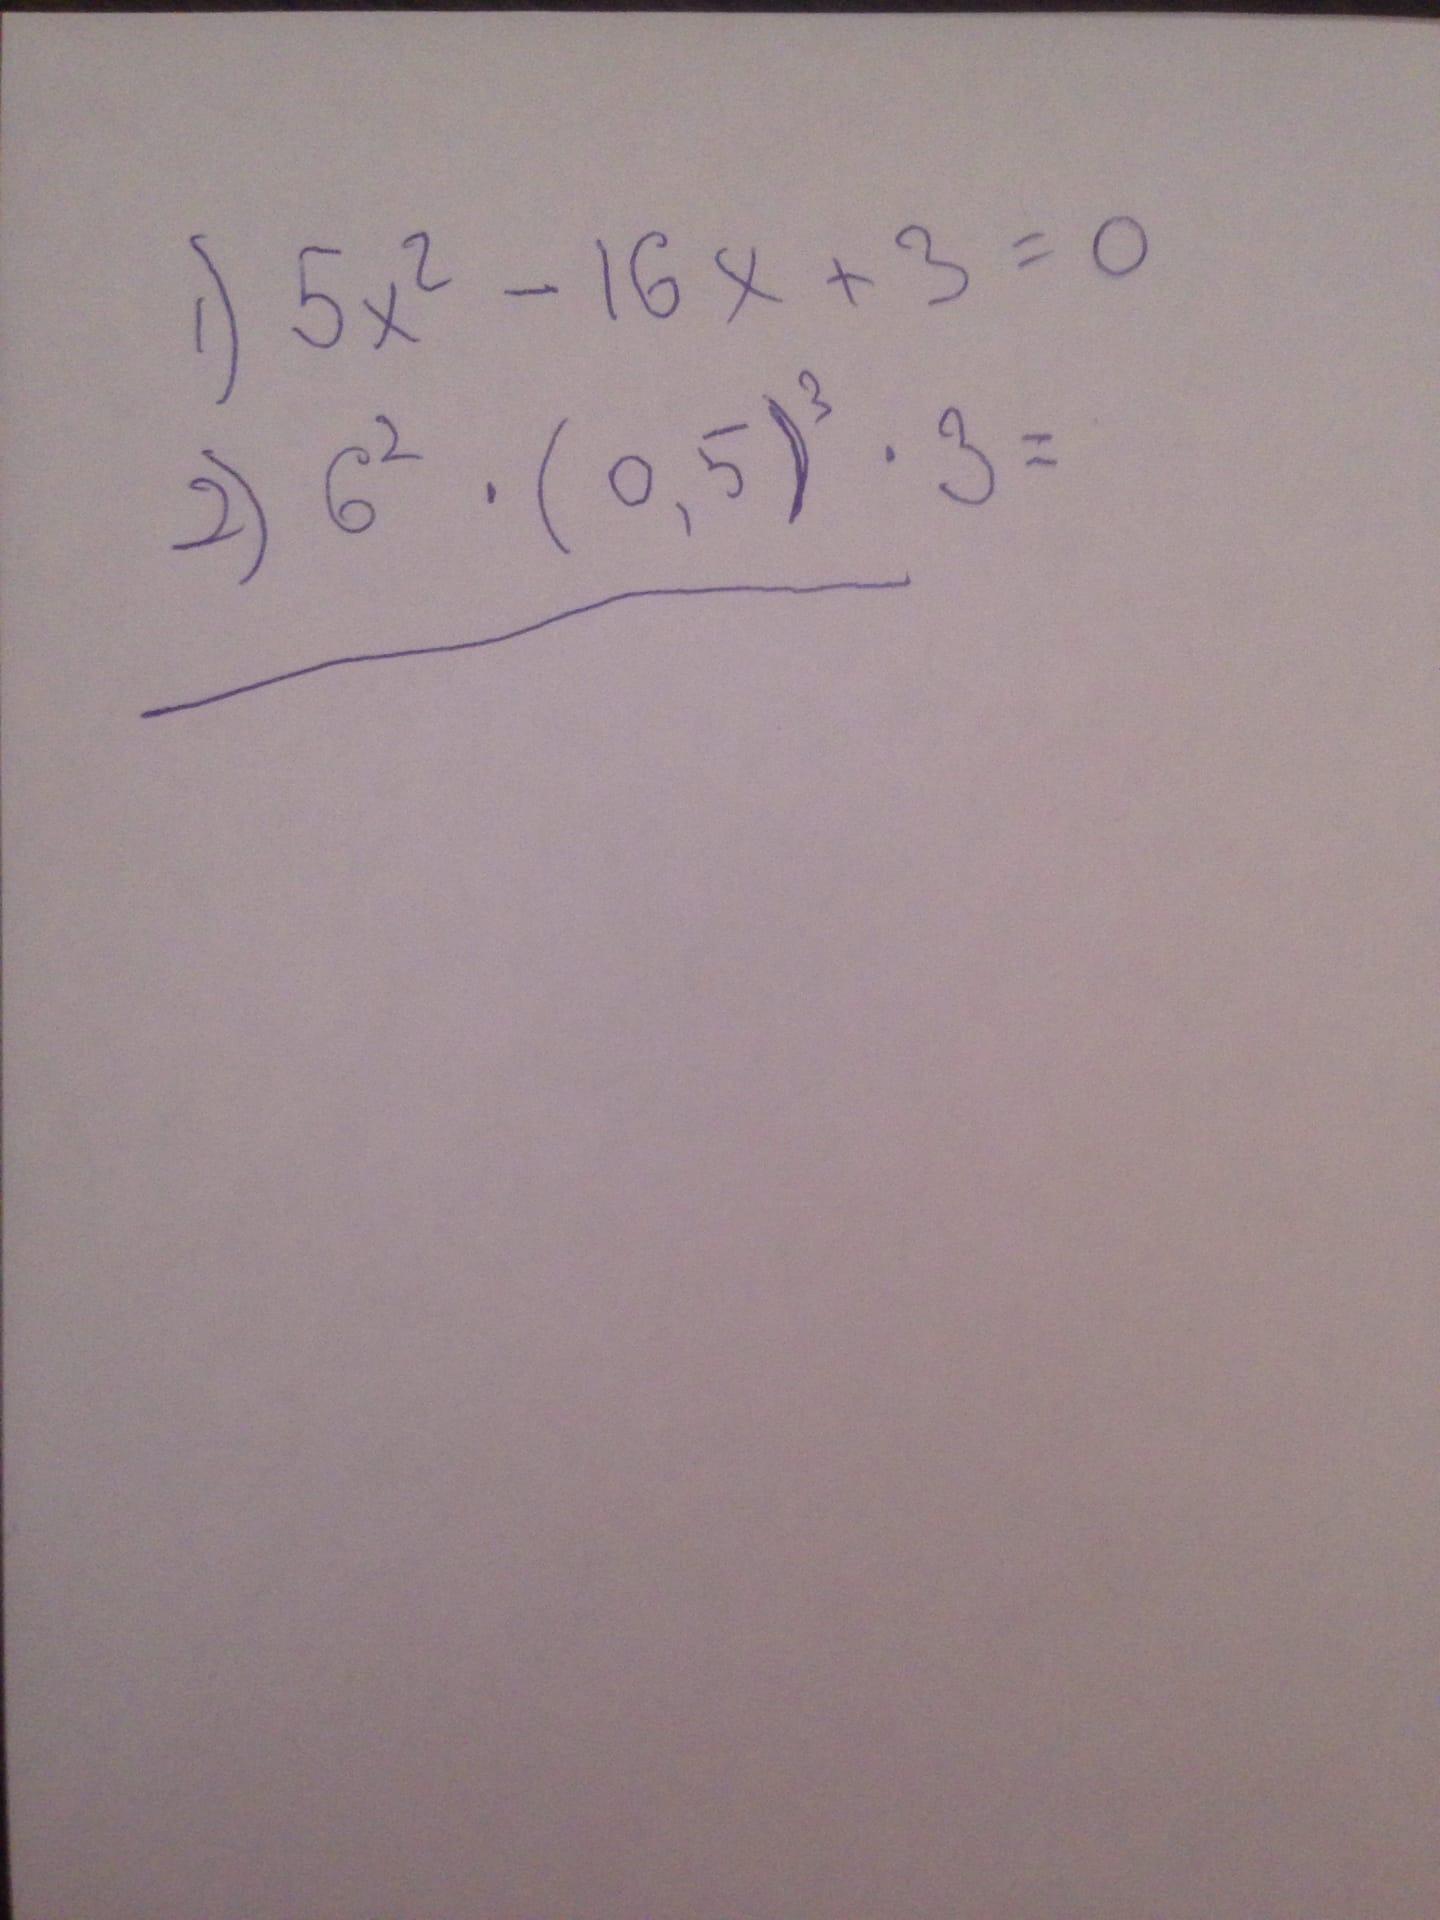 1) 5x² - 16x + 3 = 0
2) 6² · (0,5)³ · 3 =